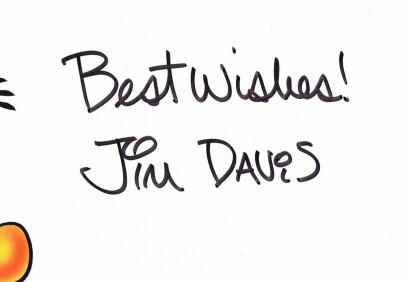 Best Wishes!
Jim Davis